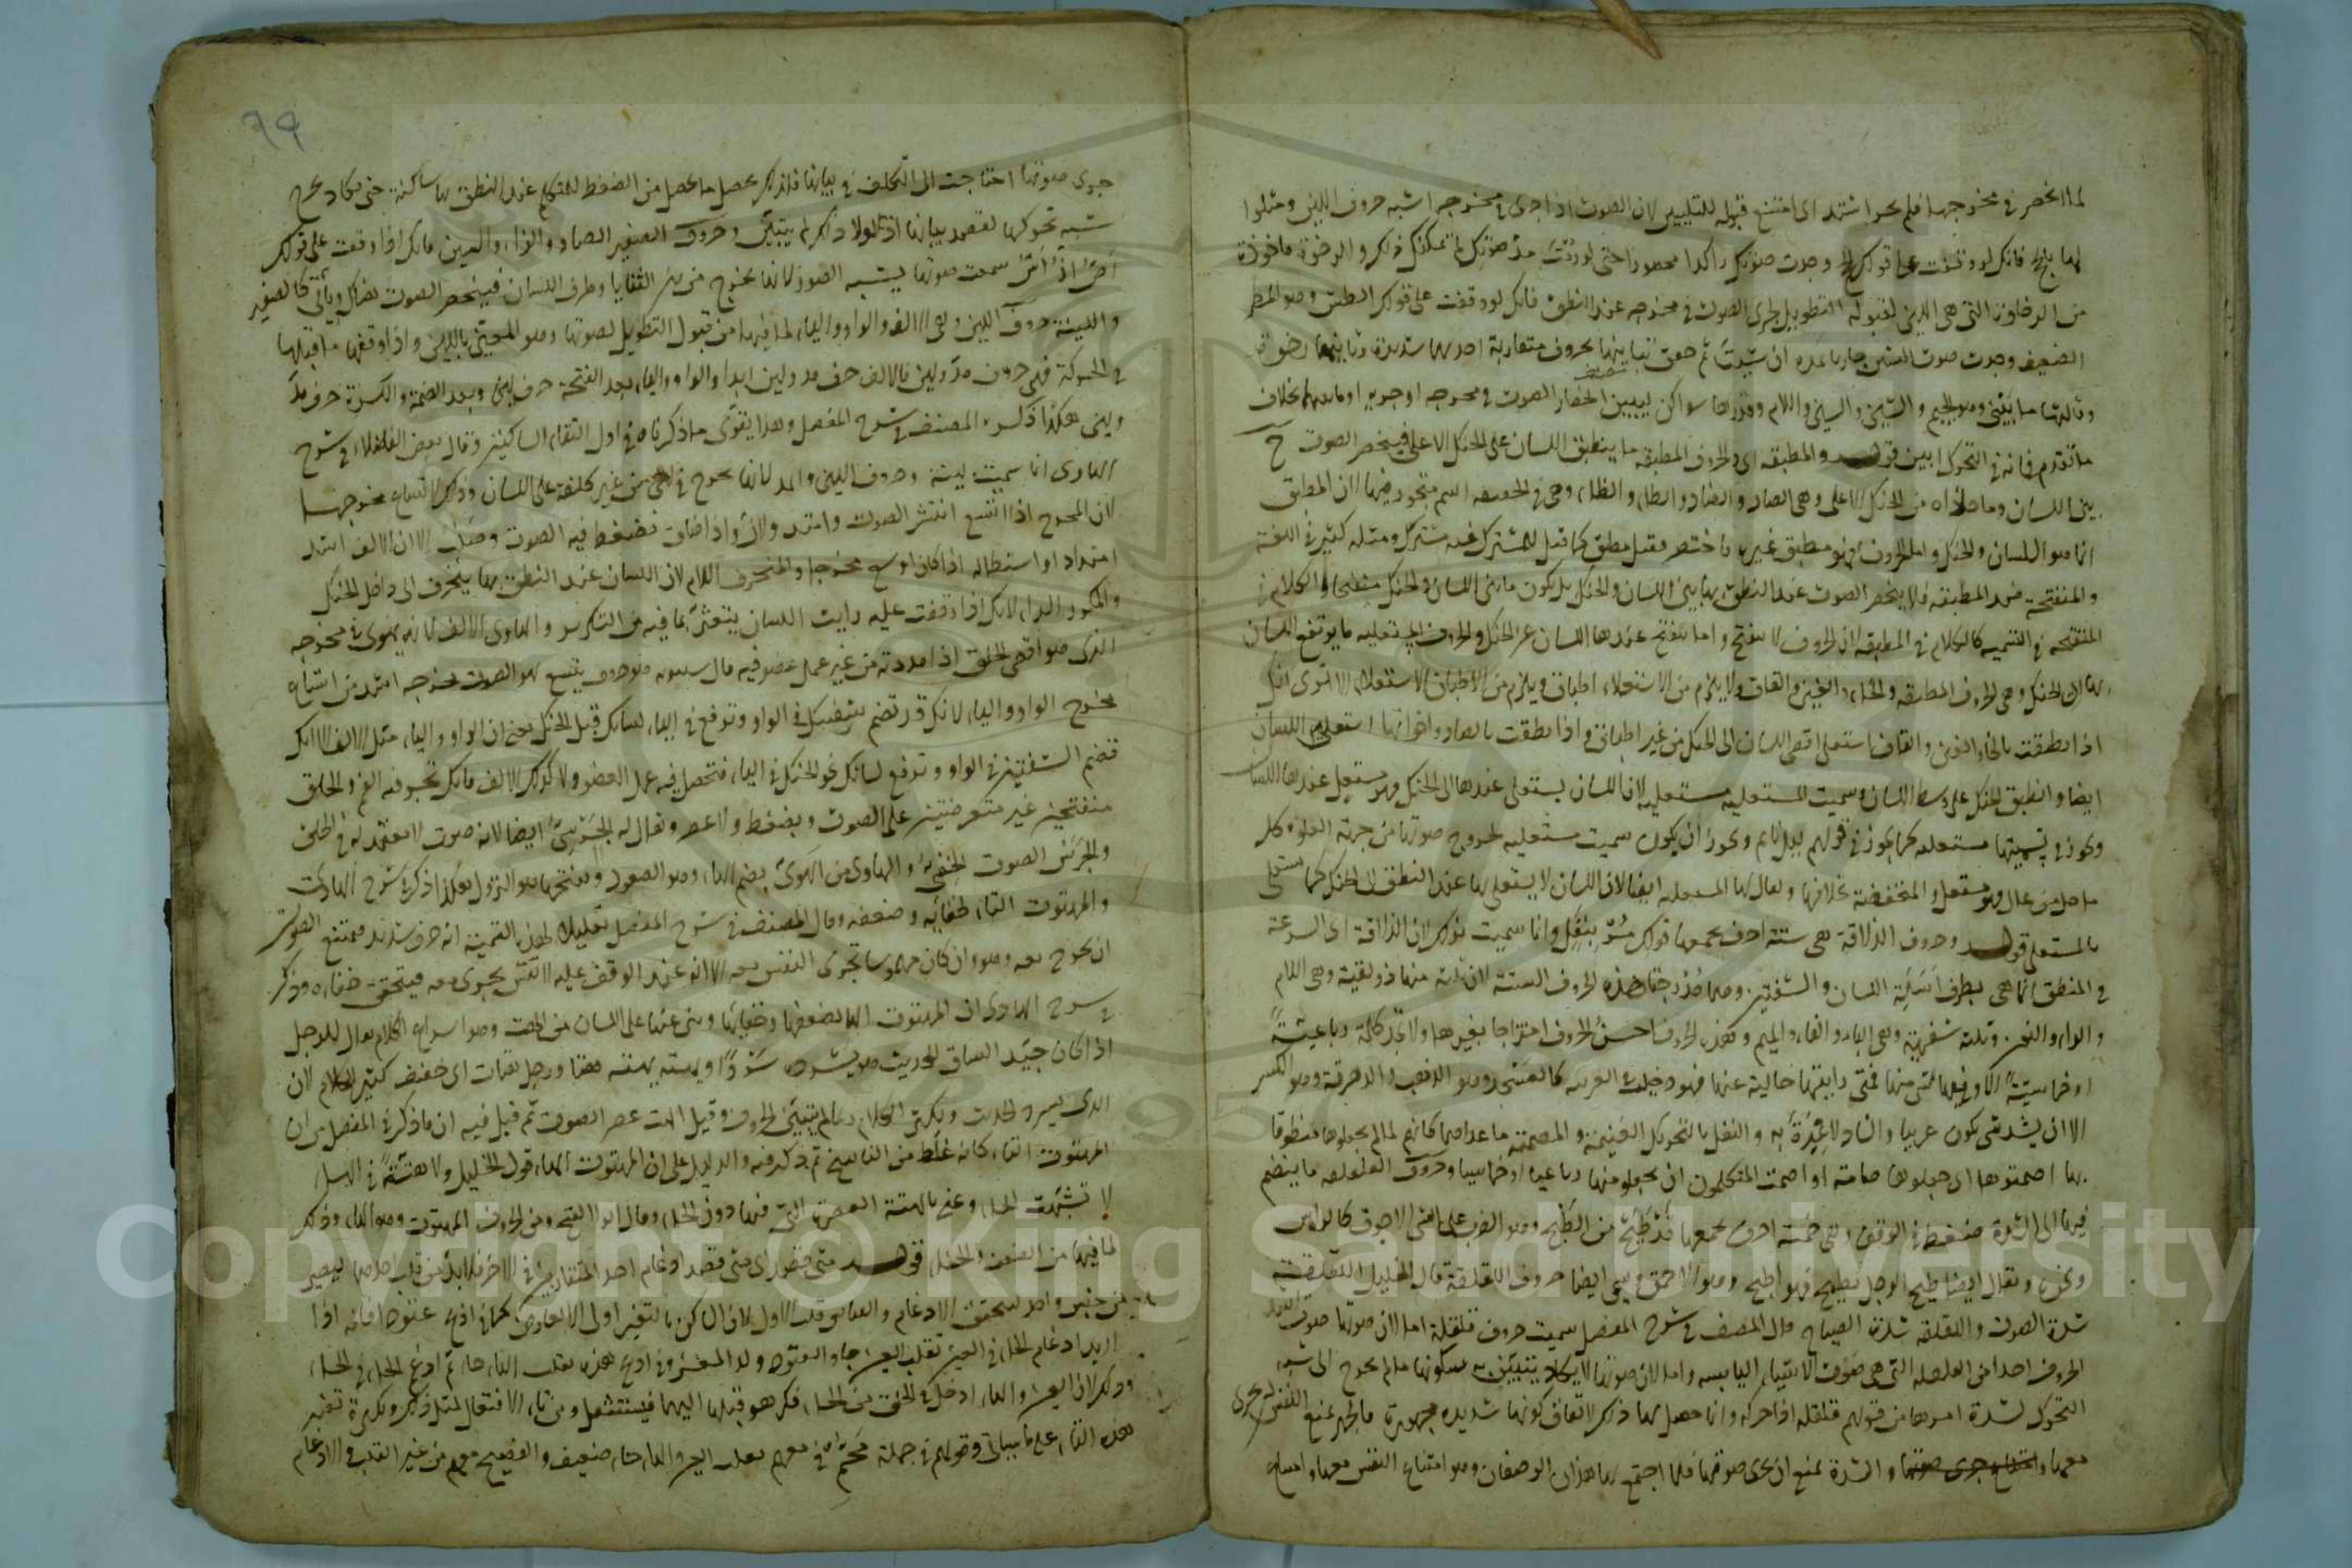 لما انحصر في مخرجها فلم يجر اشتد اى امتنع قبوله للتليين لان الصوت اذا جرى في مخرجه اشبه حروف اللين ومثلوا
لها بالحج فانك لو وقفت على قولك الحج وجدت صوتك راكدا محصورا حتى لو رمت مد صوتك لم تمكنك ذلك والرخوة ماخوذة
من الرخاوة التى هى اللين لقبوله التطويل لجرى الصوت في مخرجه عند النطق فانك لو وقفت على قولك الطش وهو المطر
الضعيف وجدت صوت الشين جاريا تمده ان شيت ثم حقق تباينها بحروف متقاربة احدها شديدة وثانيها رخوة
وثالثها ما بينى وهو الجيم والشين والسين واللام وقدرها سواكن ليبين انحصار الصوت في مخرجه او جريه او ما بينهما بخلاف
ما تقدم فانه في التحرك ابين قوله والمطبقة اى والحروف المطبقة ما ينطبق اللسان على الحنك الاعلى فينحصر الصوت ح
بين اللسان وما حاذاه من الحنك الاعلى وهى الصاد والضاد والطاء والظاء وهى في الحقيقة اسم متجوز فيها لان المطبق
انما هو اللسان والحنك واما الحروف فهو مطبق غيرها فاختصر فقيل مطبق كما قيل للمشترك فيه مشترك ومثله كثير في اللغة
والمنفتحة ضد المطبقة فلا ينحصر الصوت عند النطق بها بين اللسان والحنك بل يكون ما بين اللسان والحنك منفتحا والكلام في
المنفتحة في التسمية كالكلام في المطبقة لان الحروف لا تنفتح وانما ينفتح عندها اللسان عن الحنك والحروف المستعلية ما يرتفع اللسان
بها الى الحنك وهى الحروف المطبقة والخاء والغين والقاف ولا يلزم من الاستعلاء اطباق ويلزم من الاطباق الاستعلاء الا ترى انك
اذا نطقت بالخاء والغين والقاف استعلى اقصى اللسان الى الحنك من غير اطباق واذا نطقت بالصاد واخواتها استعلى اللسان
ايضا وانطبق الحنك على وسط اللسان وسميت المستعلية مستعلية لان اللسان يستعلى عندها الى الحنك فهو مستعل عندها اللسان
وتجوز في تسميتها مستعلية كما تجوز في قولهم ليل نايم ويجوز ان يكون سميت مستعلية لخروج صوتها من جهة العلو وكل
ما حل من عال فهو مستعل والمنخفضة بخلافها ويقال لها المستفلة ايضا لان اللسان لا يستعلى بها عند النطق الى الحنك كما يستعلى
بالمستعلى قوله وحروف الذلاقة هى ستة احرف يجمعها قولك مر بنفل وانما سميت بذلك لان الذلاقة اى السرعة
في المنطق انما هى بطرف اسلة اللسان والشفتين وهما مدرجتا هذه الحروف الستة لان ثلثة منها ذولقية وهى اللام
والراء والنون وثلثة شفهية وهى الباء والفاء والميم وهذه الحروف احسن الحروف امتزاجا بغيرها ولا تجد كلمة رباعية
او خماسية الا وفيها شى منها فمتى رايتها خالية عنها فهو دخيل في العربية كالعسجد وهو الذهب والدهدقة وهو الكسر
الا ان يشذ شى يكون عربيا والشاذ لا عبرة به والنفل بالتحريك الغنيمة والمصمتة ما عداها كانهم لما لم يجعلوها منطوقا
بها اصمتوها اى جعلوها صامتة او اصمت المتكلمون ان يجعلوا منها رباعيا او خماسيا وحروف القلقلة ما ينضم
فيها الى الشدة ضغط في الوقف وهى خمسة احرف يجمعها قد طبج من الطبج وهو الضرب على الشى الاجوف كالراس
وغيره ويقال ايضا طبج الرجل يطبج فهو اطبج وهو الاحمق ويسمى ايضا حروف اللقلقة قال الخليل القلقة
شدة الصوت واللقلقة شدة الصياح قال المصنف في شرح المفصل سميت حروف قلقلة اما لان صوتها صوت اشد
الحروف اخذا من القلقلة التى هى صوت الاشياء اليابسة واما لان صوتها لا يكاد يتبين به سكونها ما لم يخرج الى شبه
التحرك لشدة امرها من قولهم قلقله اذا حركه وانما حصل لها ذلك لاتفاق كونها شديدة مجهورة فالجهر يمنع النفس ان يجرى
معها والشدة تمنع ان يجرى صوتها فلما اجتمع لها هذان الوصفان وهو امتناع النفس معها وامتناع
٦٩
جرى صوتها احتاجت الى التكلف في بيانها فلذلك يحصل ما يحصل من الضغط للمتكلم عند النطق بها ساكنة حتى يكاد يخرج
شبه تحركها لقصد بيانها اذ لولا ذلك لم يتبين وحروف الصفير الصاد والزاء والسين فانك اذا وقفت على قولك
اص از اس سمعت صوتا يشبه الصفير لانها تخرج من بين الثنايا وطرف اللسان فينحصر الصوت هناك ويأتى كالصفير
واللينة حروف اللين وهى الالف والواو والياء لما فيها من قبول التطويل لصوتها وهو المعنى باللين واذا وافقها ما قبلها
في الحركة فهى حروف مد ولين فالالف حرف مد ولين ابدا والواو والياء بعد الفتحة حرف لين وبعد الضمة والكسرة حرف مد
ولين هكذا ذكره المصنف في شرح المفصل وهذا يقوى ما ذكرناه في اول التقاء الساكنين وقال بعض الفضلاء في شرح
الهادى انما سميت لينة وحروف اللين والمد لانها تخرج في لين من غير كلفة على اللسان وذلك لاتساع مخرجها
لان المخرج اذا اتسع انتشر الصوت وامتد ولان واذا ضاق انضغط فيه الصوت وصلب الا ان الالف اشد
امتدادا واستطالة اذا كان اوسع مخرجا والمنحرف اللام لان اللسان عند النطق بها ينحرف الى داخل الحنك
والمكرر الراء لانك اذا وقفت عليه رايت اللسان يتعثر بما فيه من التكرير والهاوى الالف لانه يهوى في مخرجه
الذى هو اقصى الحلق اذا مددته من غير عمل عضو فيه قال سيبويه هو حرف يتسع لهواء الصوت مخرجه اشد من اتساع
مخرج الواو والياء لانك قد تضم شفتيك في الواو وترفع في الياء لسانك قبل الحنك يعنى ان الواو والياء مثل الالف الا انك
تضم الشفتين في الواو وترفع لسانك نحو الحنك في الياء فتحصل فيه عمل العضو ولا كذلك الالف فانك تجد فيه الفم والحلق
منفتحين غير متعرضين على الصوت بضغط ولا عصر ويقال له الجرسى ايضا لانه صوت لا معتمد له في الحلق
والجرس الصوت الخفى والهاوى من الهوى بضم الهاء وهو الصعود وبفتحها هو النزول هكذا ذكر في شرح الهادى
والمهتوت التاء لخفائه وضعفه وقال المصنف في شرح المفصل تعليلا لهذه التسمية انه حرف شديد فيمتنع الصوت
ان يخرج معه وهو وان كان مهموسا يجرى النفس معه الا انه عند الوقف عليه لا نفس يجرى معه فيتحقق خفاؤه وذكر
في شرح الهادى ان المهتوت الهاء لضعفها وخفائها وهى عنها على اللسان من الهت وهو اسراع الكلام يقال للرجل
اذا كان جيد السياق للحديث هو يسرده سردا ويهته يهته هتا ورجل هتات اى خفيف كثير الكلام لان
الذى يسرد الحديث ويكثر الكلام ربما لم يتبين الحروف وقيل الهت عصر الصوت ثم قيل فيه ان ما ذكر في المفصل من ان
المهتوت التاء كانه غلط من الناسخ ثم ذكر فيه والدليل على ان المهتوت الهاء قول الخليل ولولا هتة في الهاء
لاشبهت الحاء وعنى بالهتة العصرة التى فيها دون الحاء وقال ابو الفتح ومن الحروف المهتوت وهو الهاء وذلك
لما فيها من الضعف والخفاء قوله متى قصد اى متى قصد ادغام احد المتقاربين في الاخر فلا بد من قلب احدهما ليصير
من جنس واحد ليتحقق الادغام والقياس قلب الاول لان الساكن بالتغير اولى الا لعارض كما في اذبح عتودا فانه اذا
اريد ادغام الحاء في العين تقلب العين حاء والعتود ولد المعز وفي اذبح هذه تقلب الهاء حاء ثم ادغم الحاء في الحاء
وذلك لان العين والهاء ادخل في الحلق من الحاء فكرهوا قلبها اليهما فيستثقل ومن تاء الافتعال لمثل ذلك ولكثرة تغير
هذه التاء على ما سياتى وقولهم في جملة محم في معهم بقلب العين والهاء حاء ضعيف والفصيح معهم من غير القلب والادغام